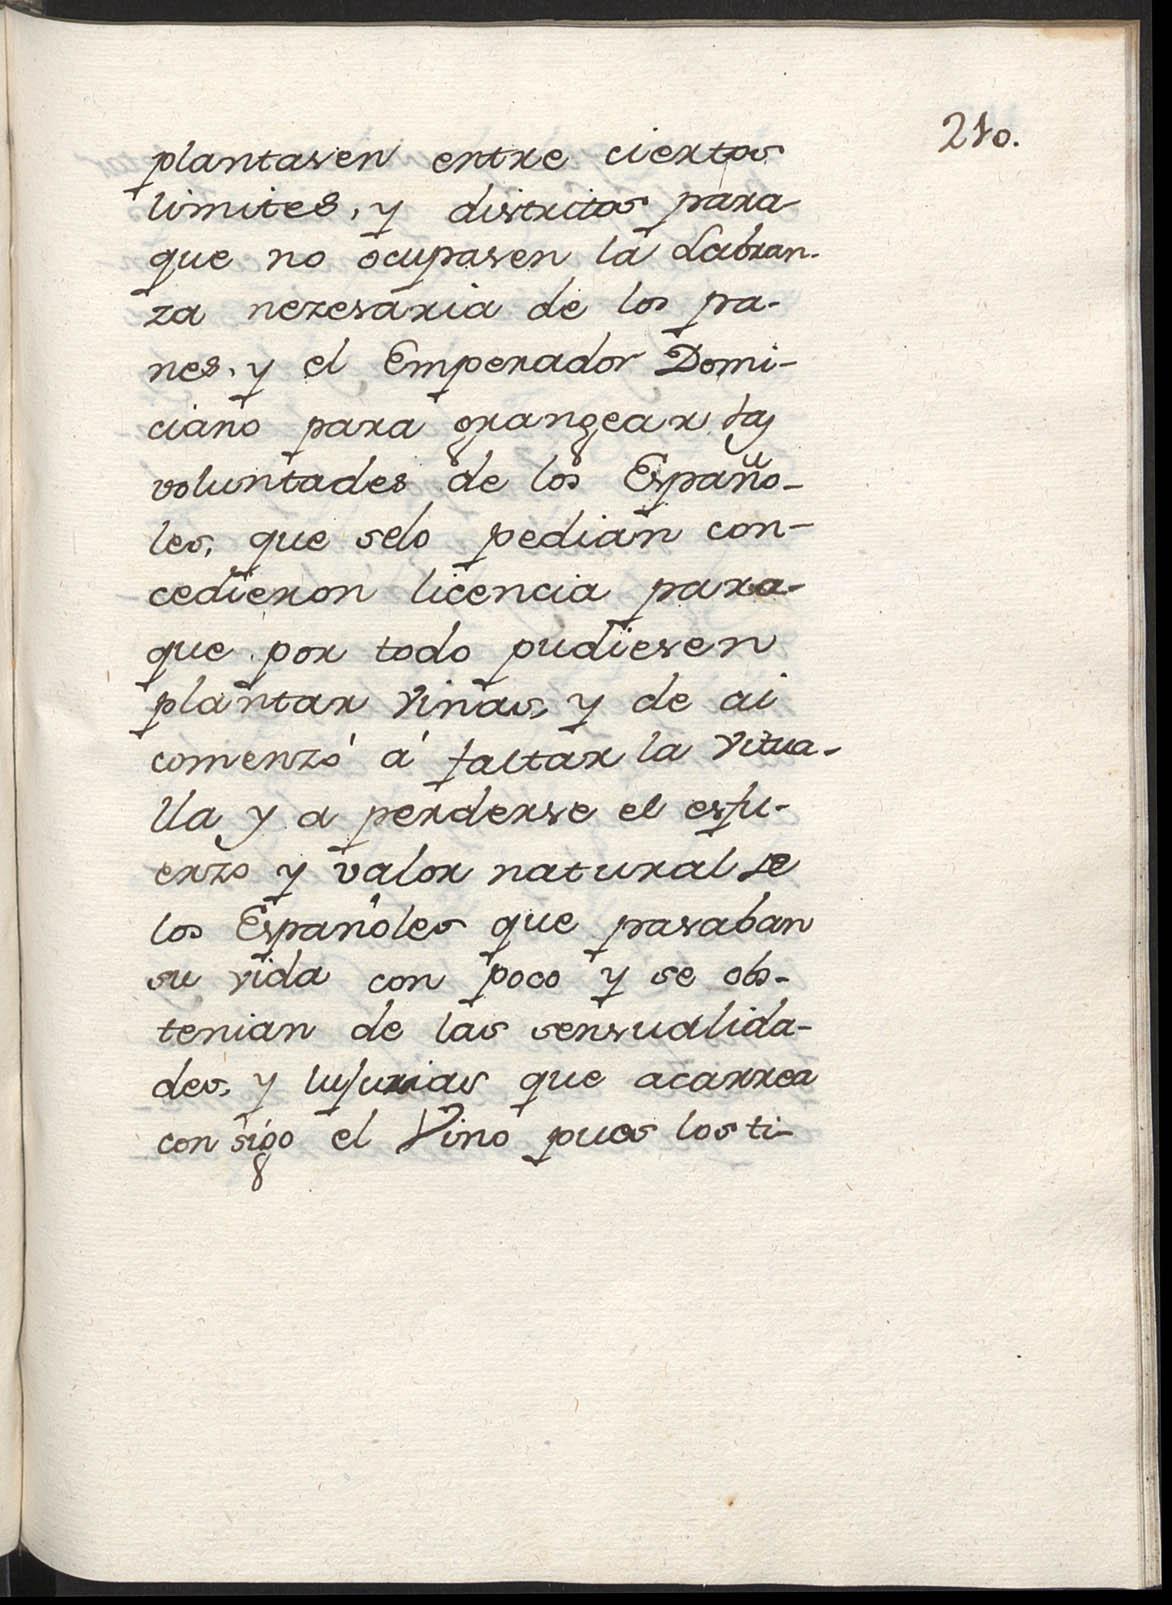 210.
plantasen entre ciertos
limites, y distritos para
que no ocupasen la Labran-
za nezesaria de los pa-
nes, y el Emperador Domi-
ciano para grangear las
voluntades de los Españo-
les, que selo pedian con-
cedieron licencia para
que por todo pudiesen
plantar Vinas, y de ai
comenzó á faltar la Vitua-
lla y a perderse el esfu-
erzo y valor natural de
los Españoles que pasaban
su vida con poco y se obs-
tenian de las sensualida-
des, y lujurias que acarrea
con sigo el Vino pues los ti-